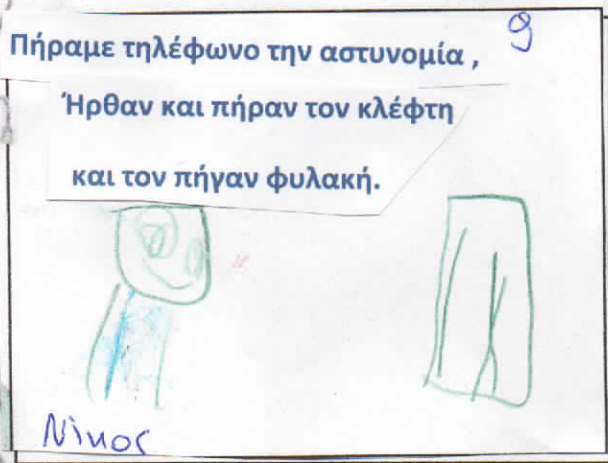 9
Πήραμε τηλέφωνο την αστυνομία ,
Ήρθαν και πήραν τον κλέφτη
και τον πήγαν φυλακή.
Νίκος